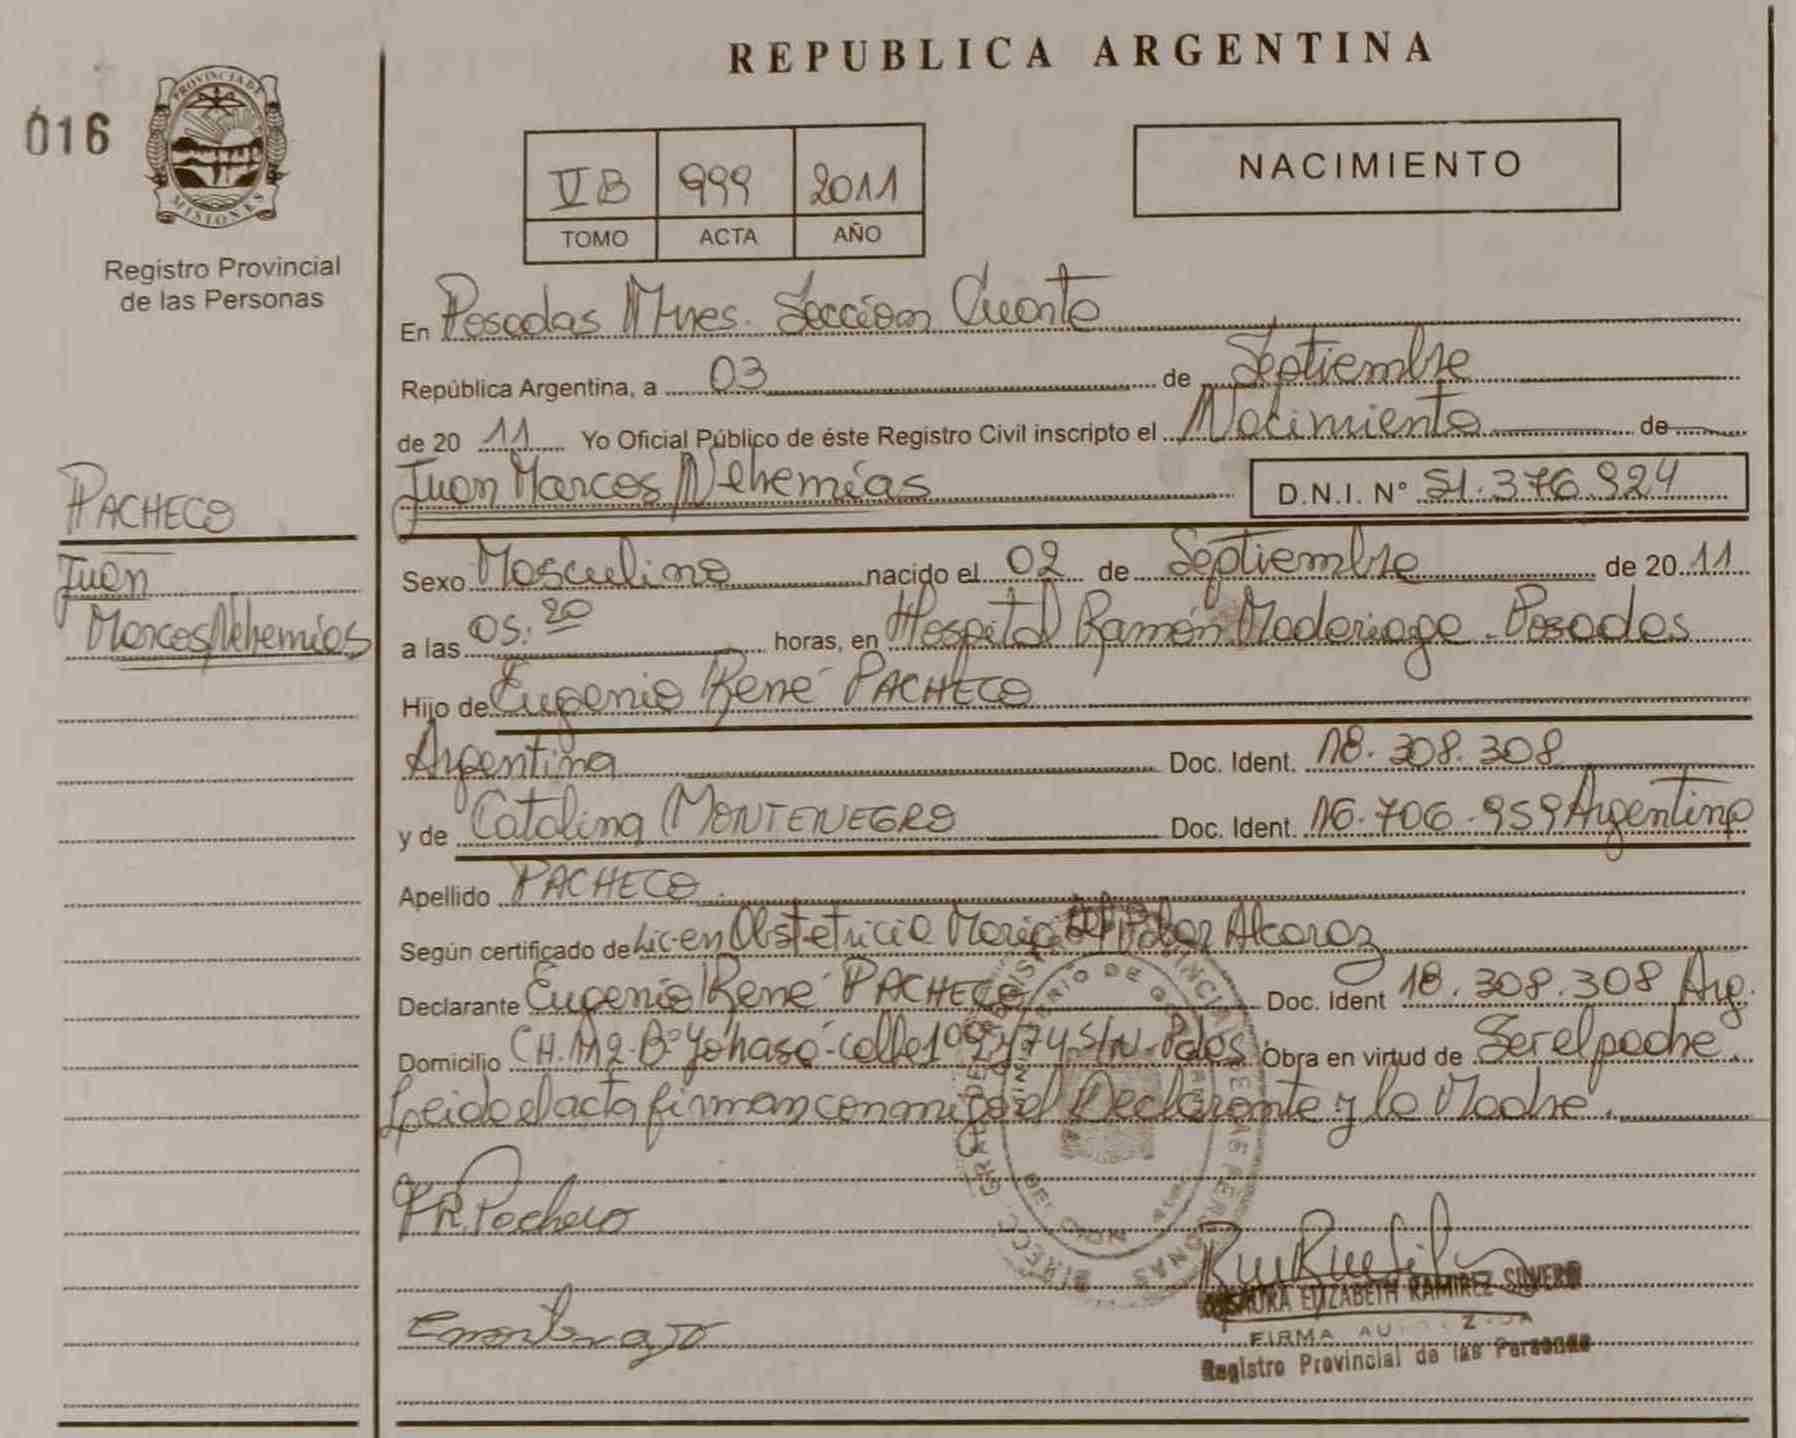 REPUBLICA ARGENTINA
016
PROVINCIA DE
MISIONES
Registro Provincial
de las Personas
VB 999 2011
TOMO ACTA AÑO
NACIMIENTO
En Posadas Mnes. Sección Cuarta
República Argentina, a 03 de Septiembre
de 20 11 Yo Oficial Público de éste Registro Civil inscripto el Nacimiento de
Juan Marcos Nehemías D.N.I. N° 51.376.924
PACHECO
Juan
Marcos Nehemías
Sexo Masculino nacido el 02 de Septiembre de 20 11
a las 05:20 horas, en Hospital Ramón Madariaga - Posadas
Hijo de Eugenio René PACHECO
Argentina Doc. Ident. 18.308.308
y de Catalina MONTENEGRO Doc. Ident. 16.706.959 Argentina
Apellido PACHECO.
Según certificado de Lic. en Obstetricia María del Pilar Alcaraz
Declarante Eugenio René PACHECO Doc. Ident 18.308.308 Arg.
Domicilio CH. 112-B° Yohasá-calle S/N-Pdas Obra en virtud de Ser el padre.
Leido el acta firman conmigo el Declarante y la Madre.
Pacheco
ELIZABETH RAMIREZ SILVERO
FIRMA
Registro Provincial de las Personas